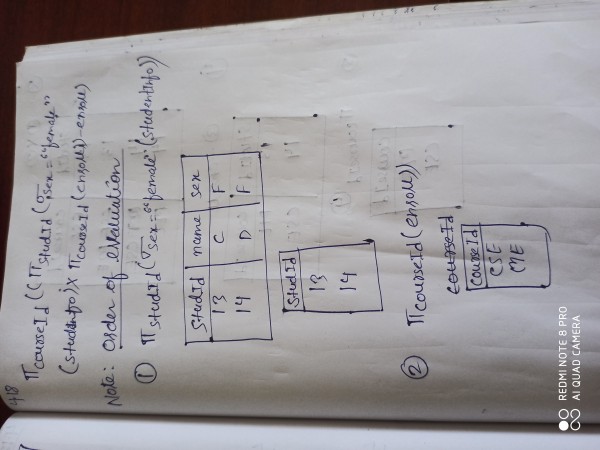 4/8
π courseId ((π studId (σ sex = "female"
(studentinfo)) × π courseId (enroll)) - enroll)
Note: order of evaluation
① π studId (σ sex = "female" (studentInfo))
studId name sex
13 C F
14 D F
studId
13
14
② π courseId (enroll))
courseId
courseId
CSE
ME
REDMI NOTE 8 PRO
AI QUAD CAMERA